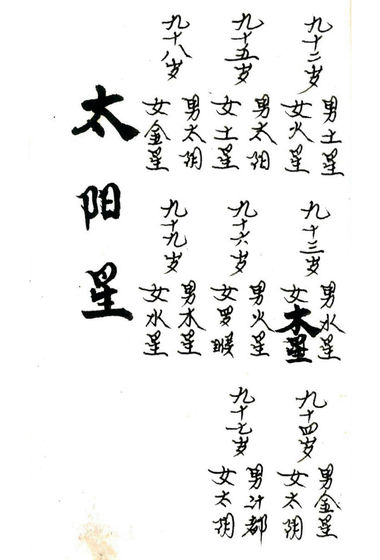 九十二岁
男土星
女火星
九十三岁
男水星
女木星
九十四岁
男金星
女太阴
九十五岁
男太阳
女土星
九十六岁
男火星
女罗睺
九十七岁
男计都
女太阴
九十八岁
男太阴
女金星
九十九岁
男木星
女水星
太阳星